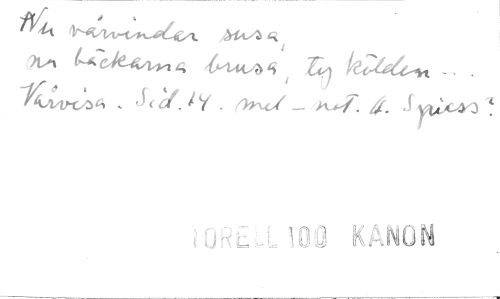 Nu vårvindar susa,
nu bäckarna brusa, ty kölden...
Vårvisa. Sid. 14. mel-not. A. Spiess?
TORELL 100 KANON